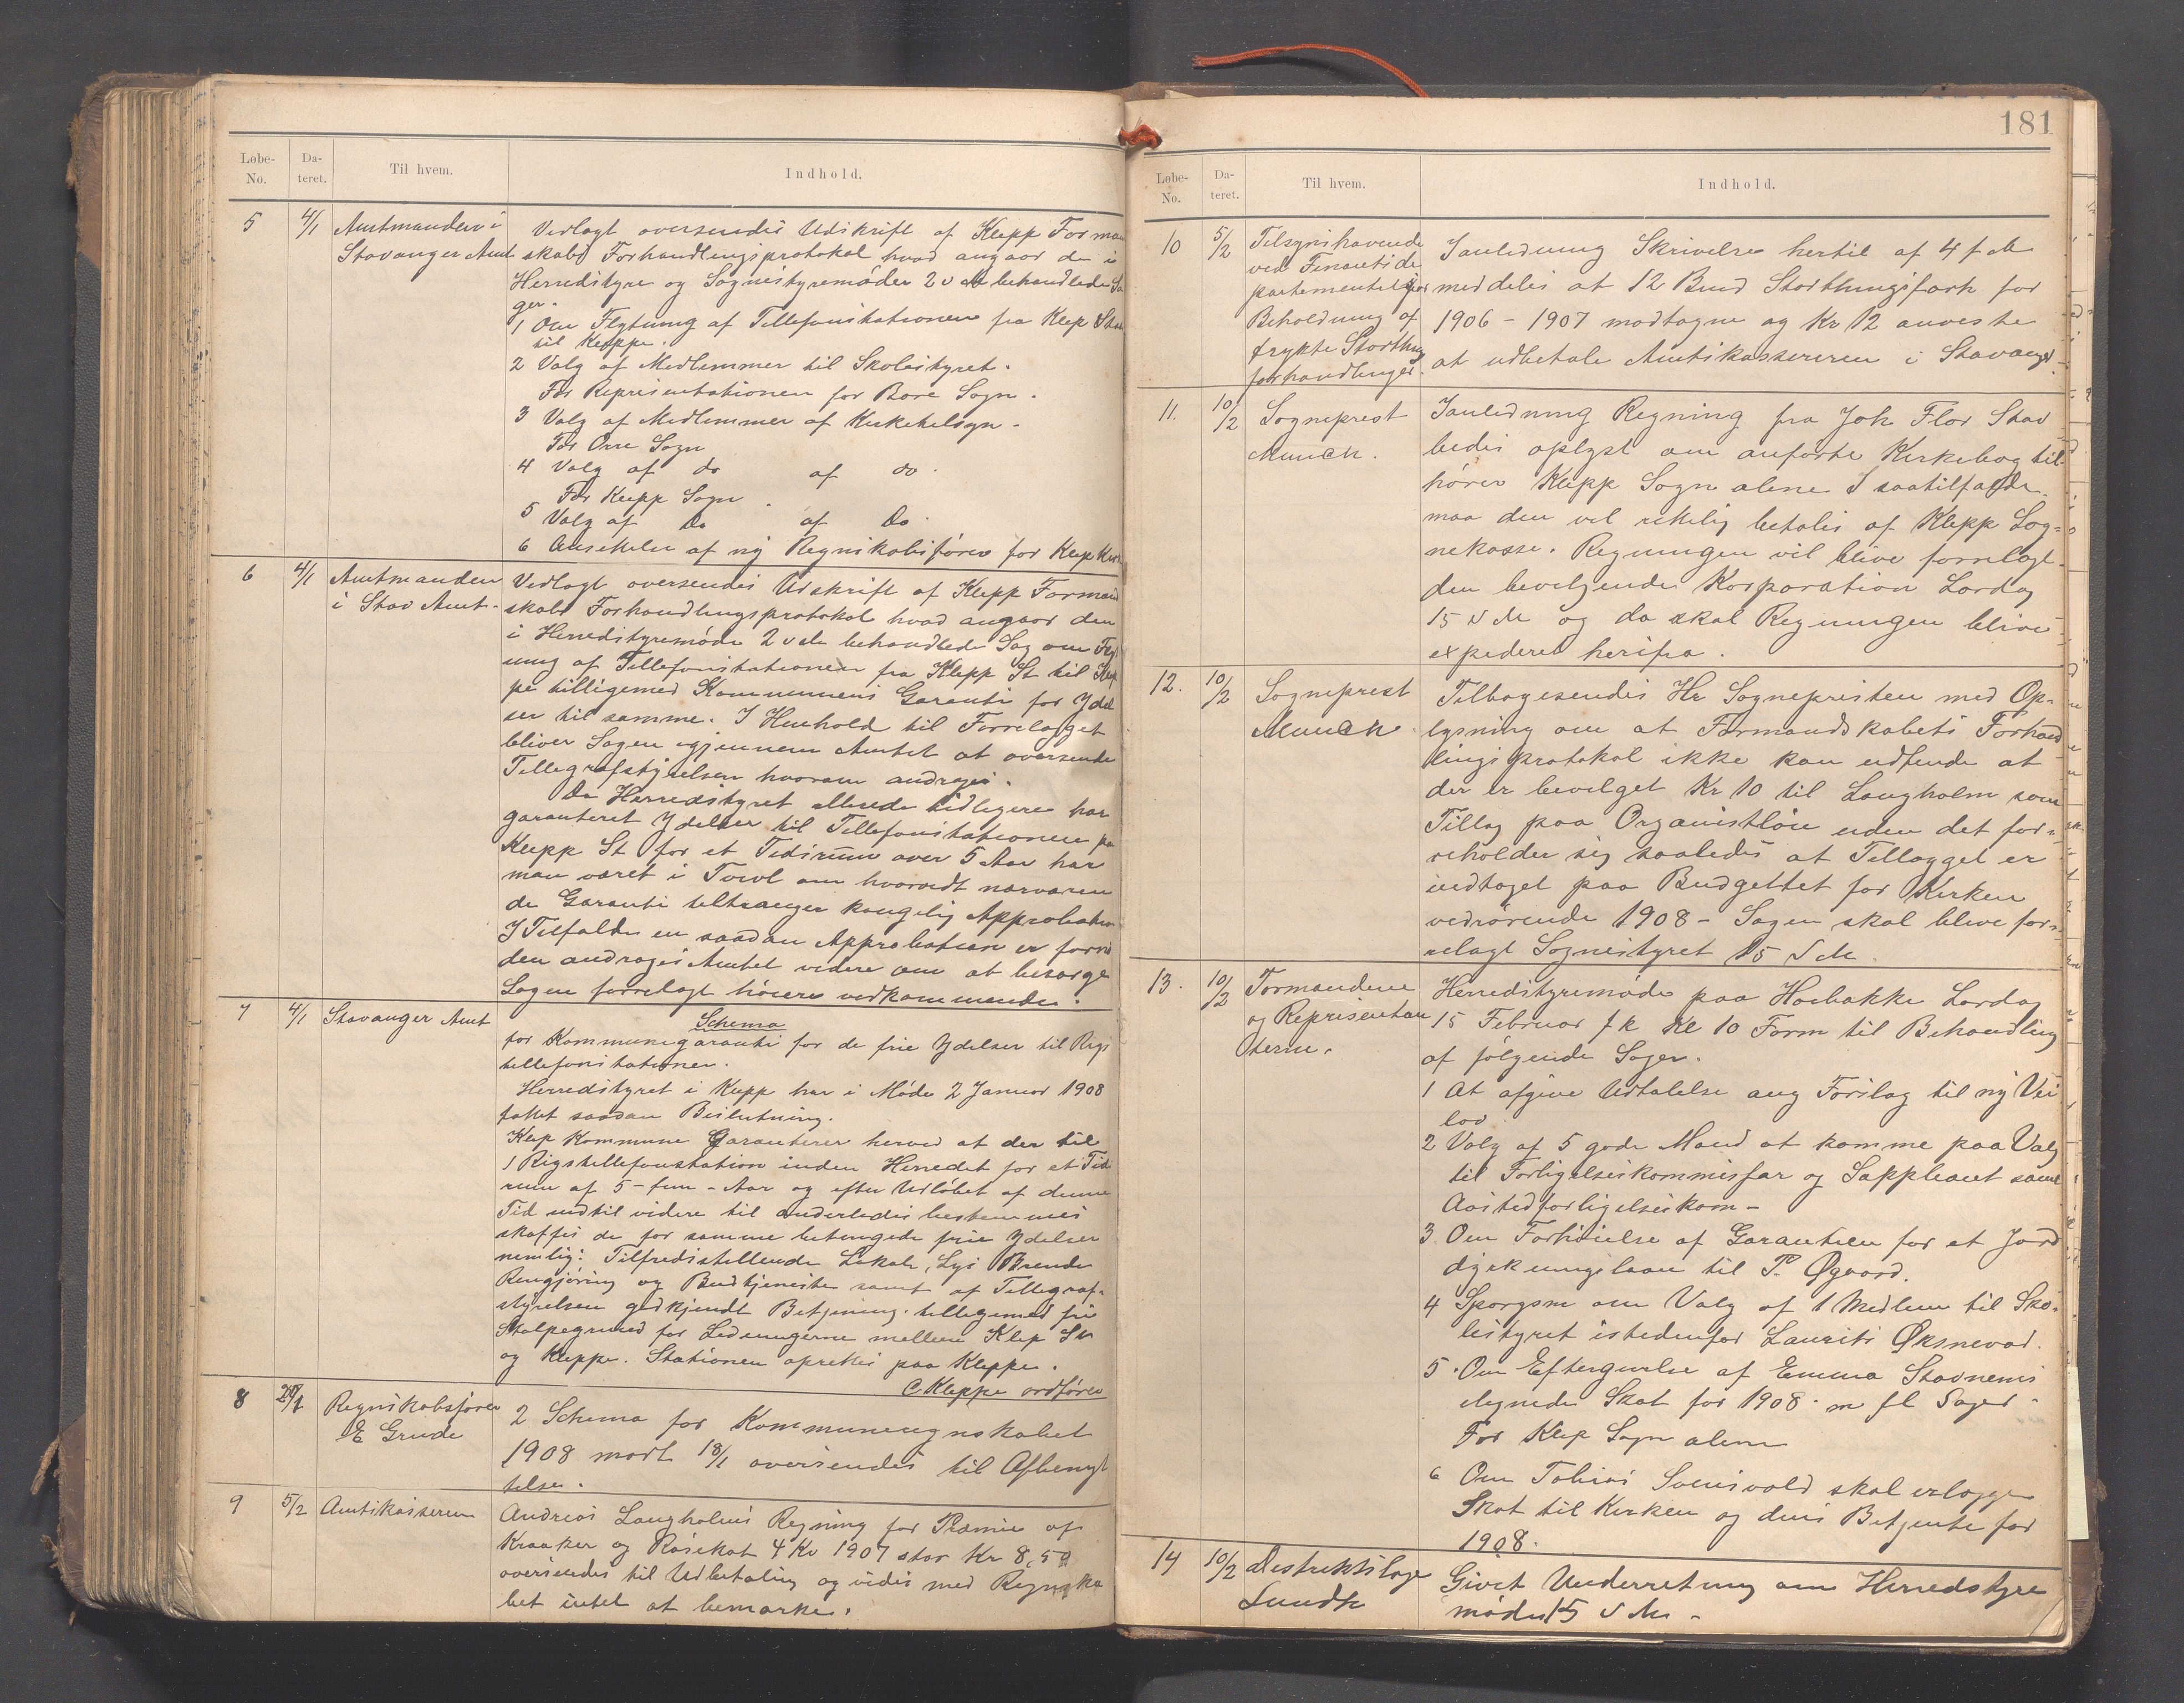 Løbe-No. Dateret. Til hvem. Indhold.
5 4/1 Amtmanden i Stavanger Amt
Vedlagt oversendes Udskrift af Klepp Formand
skabs Forhandlingsprotokol hvad angaar de i
Herredstyre og Sognestyremøder 2 d M behandlede Sa
ger.
1 Om Flytning af Tellefonstationen fra Klep St
til Kleppe.
2 Valg af Medlemmer til Skolestyret.
For Representationen for Bore Sogn.
3 Valg af Medlemmer af Kirketilsyn -
For Orre Sogn
4 Valg af do af do.
For Klepp Sogn
5 Valg af Do af Do.
6 Ansettelse af ny Regnskabsfører for Klep Kirke
6 4/1 Amtmanden
i Stav Amt-
Vedlagt oversendes Udskrift af Klepp Formand
skabs Forhandlingsprotokol hvad angaar den
i Herredstyremøde 2 d M behandlede Sag om Flyt
ning af Tellefonstationen fra Klepp St til Klep
pe tilligemed Kommunens Garanti for Ydel
ser til samme. I Henhold til Forrelagget
bliver Sagen igjennem Amtet at oversende
Tellegrafstyrelsen hvorom andrages.
Da Herredstyret allerede tidligere har
garanteret Ydelser til Tellefonstationen pa
Klepp St for et Tidsrum over 5 Aar har
man været i Tvivl om hvorvidt nærværen
de Garanti tiltrænger kongelig Approbation
I Tilfælde en saadan Approbation er fornø
den andrages Amtet videre om at besørge
Sagen forrelagt høiere vedkommende.
7 4/1 Stavanger Amt
Schema
for Kommunegaranti for de frie Ydelser til Rigs
tellefonstationer.
Herredstyret i Klepp har i Møde 2 Januar 1908
fattet saadan Beslutning.
Klep Kommune Garanterer herved at der til
1 Rigstellefonstation inden Herredet for et Tids
rum af 5 - fem - Aar og efter Udløbet af denne
Tid indtil videre til anderledes bestemmes
skaffes de for samme betingede frie Ydelser
nemlig: Tilfredsstillende Lokale, Lys Brende
Rengjøring og Budtjeneste samt af Tellegraf-
styrelsen godkjendt Betjening. tilligemed fri
Stolpegrund for Ledningerne mellem Klep St
og Kleppe. Stationen oprettes paa Kleppe.
C. Kleppe ordfører
8 Regnskabsfører
E Grude
2 Schema for Kommuneregnskabet
1908 modt 18/1 oversendes til Afbenyt
telse.
9 5/2 Amtskasseren
Andreas Langholms Regning for Præmie af
Kraaker og Røsekat 4 Kv 1907 stor Kr 8,50
oversendes til Udbetaling og vides med Regnska
bet intet at bemærke.
181
Løbe-No. Dateret. Til hvem. Indhold.
10 5/2 Tilsynshavende
ved Finantsde
partementet for
Beholdning af
trykte Storthings
forhandlinger.
I anledning Skrivelse hertil af 4 f M
meddeles at 12 Bind Storthingsforh for
1906 - 1907 modtagne og Kr 12 anviste
at udbetale Amtskassereren i Stavanger.
11. 10/2 Sogneprest
Munch.
I anledning Regning fra Joh Flor Stav
bedes oplyst om anførte Kirkebog til
hører Klepp Sogn alene I saatilfælde
maa den vel rettelig betales af Klepp Sog=
nekasse. Regningen vil blive forrelagt
den bevilgende Korporation Lørdag
15 d M og da skal Regningen blive
expederet herifra.
12. 10/2 Sogneprest
Munch
Tilbagesendes Hr Sognepresten med Op-
lysning om at Formandskabets Forhand
lingsprotokol ikke kan udfinde at
der er bevilget Kr 10 til Langholm som
Tillæg paa Organistløn uden det for=
reholder sig saaledes at Tillægget er
indtaget paa Budgettet for Kirken
vedrørende 1908 - Sagen skal blive for=
relagt Sognestyret 15 d M.
13. 10/2 Formændene
og Representan
terne.
Herredstyremøde paa Haebakke Lørdag
15 Februar f k Kl 10 Form til Behandling
af følgende Sager.
1 At afgive Udtalelse ang Forslag til ny Vei
lov
2 Valg af 5 gode Mænd at komme paa Valg
til Forligelseskommissær og Suppleant samt
Aastedforligelseskom-
3. Om Forhøielse af Garantien for et Jord
dyrkningslaan til P. Øgaard.
4 Spørgsm om Valg af 1 Medlem til Sko-
lestyret istedenfor Laurits Øksnevad.
5. Om Eftergivelse af Emma Stavnems
ilignede Skat for 1908. m fl Sager -
For Klep Sogn alene
6 Om Tobias Svensvold skal erlægge
Skat til Kirken og dens Betjente for
1908.
14 10/2 Destriktslæge
Lundh
Givet Underretning om Herredstyre
møde 15 d M. -